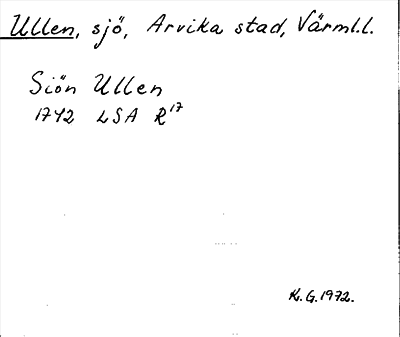 Ullen, sjö, Arvika stad, Värml.l.
Siön Ullen
1742 LSA R17
K.G.1972.